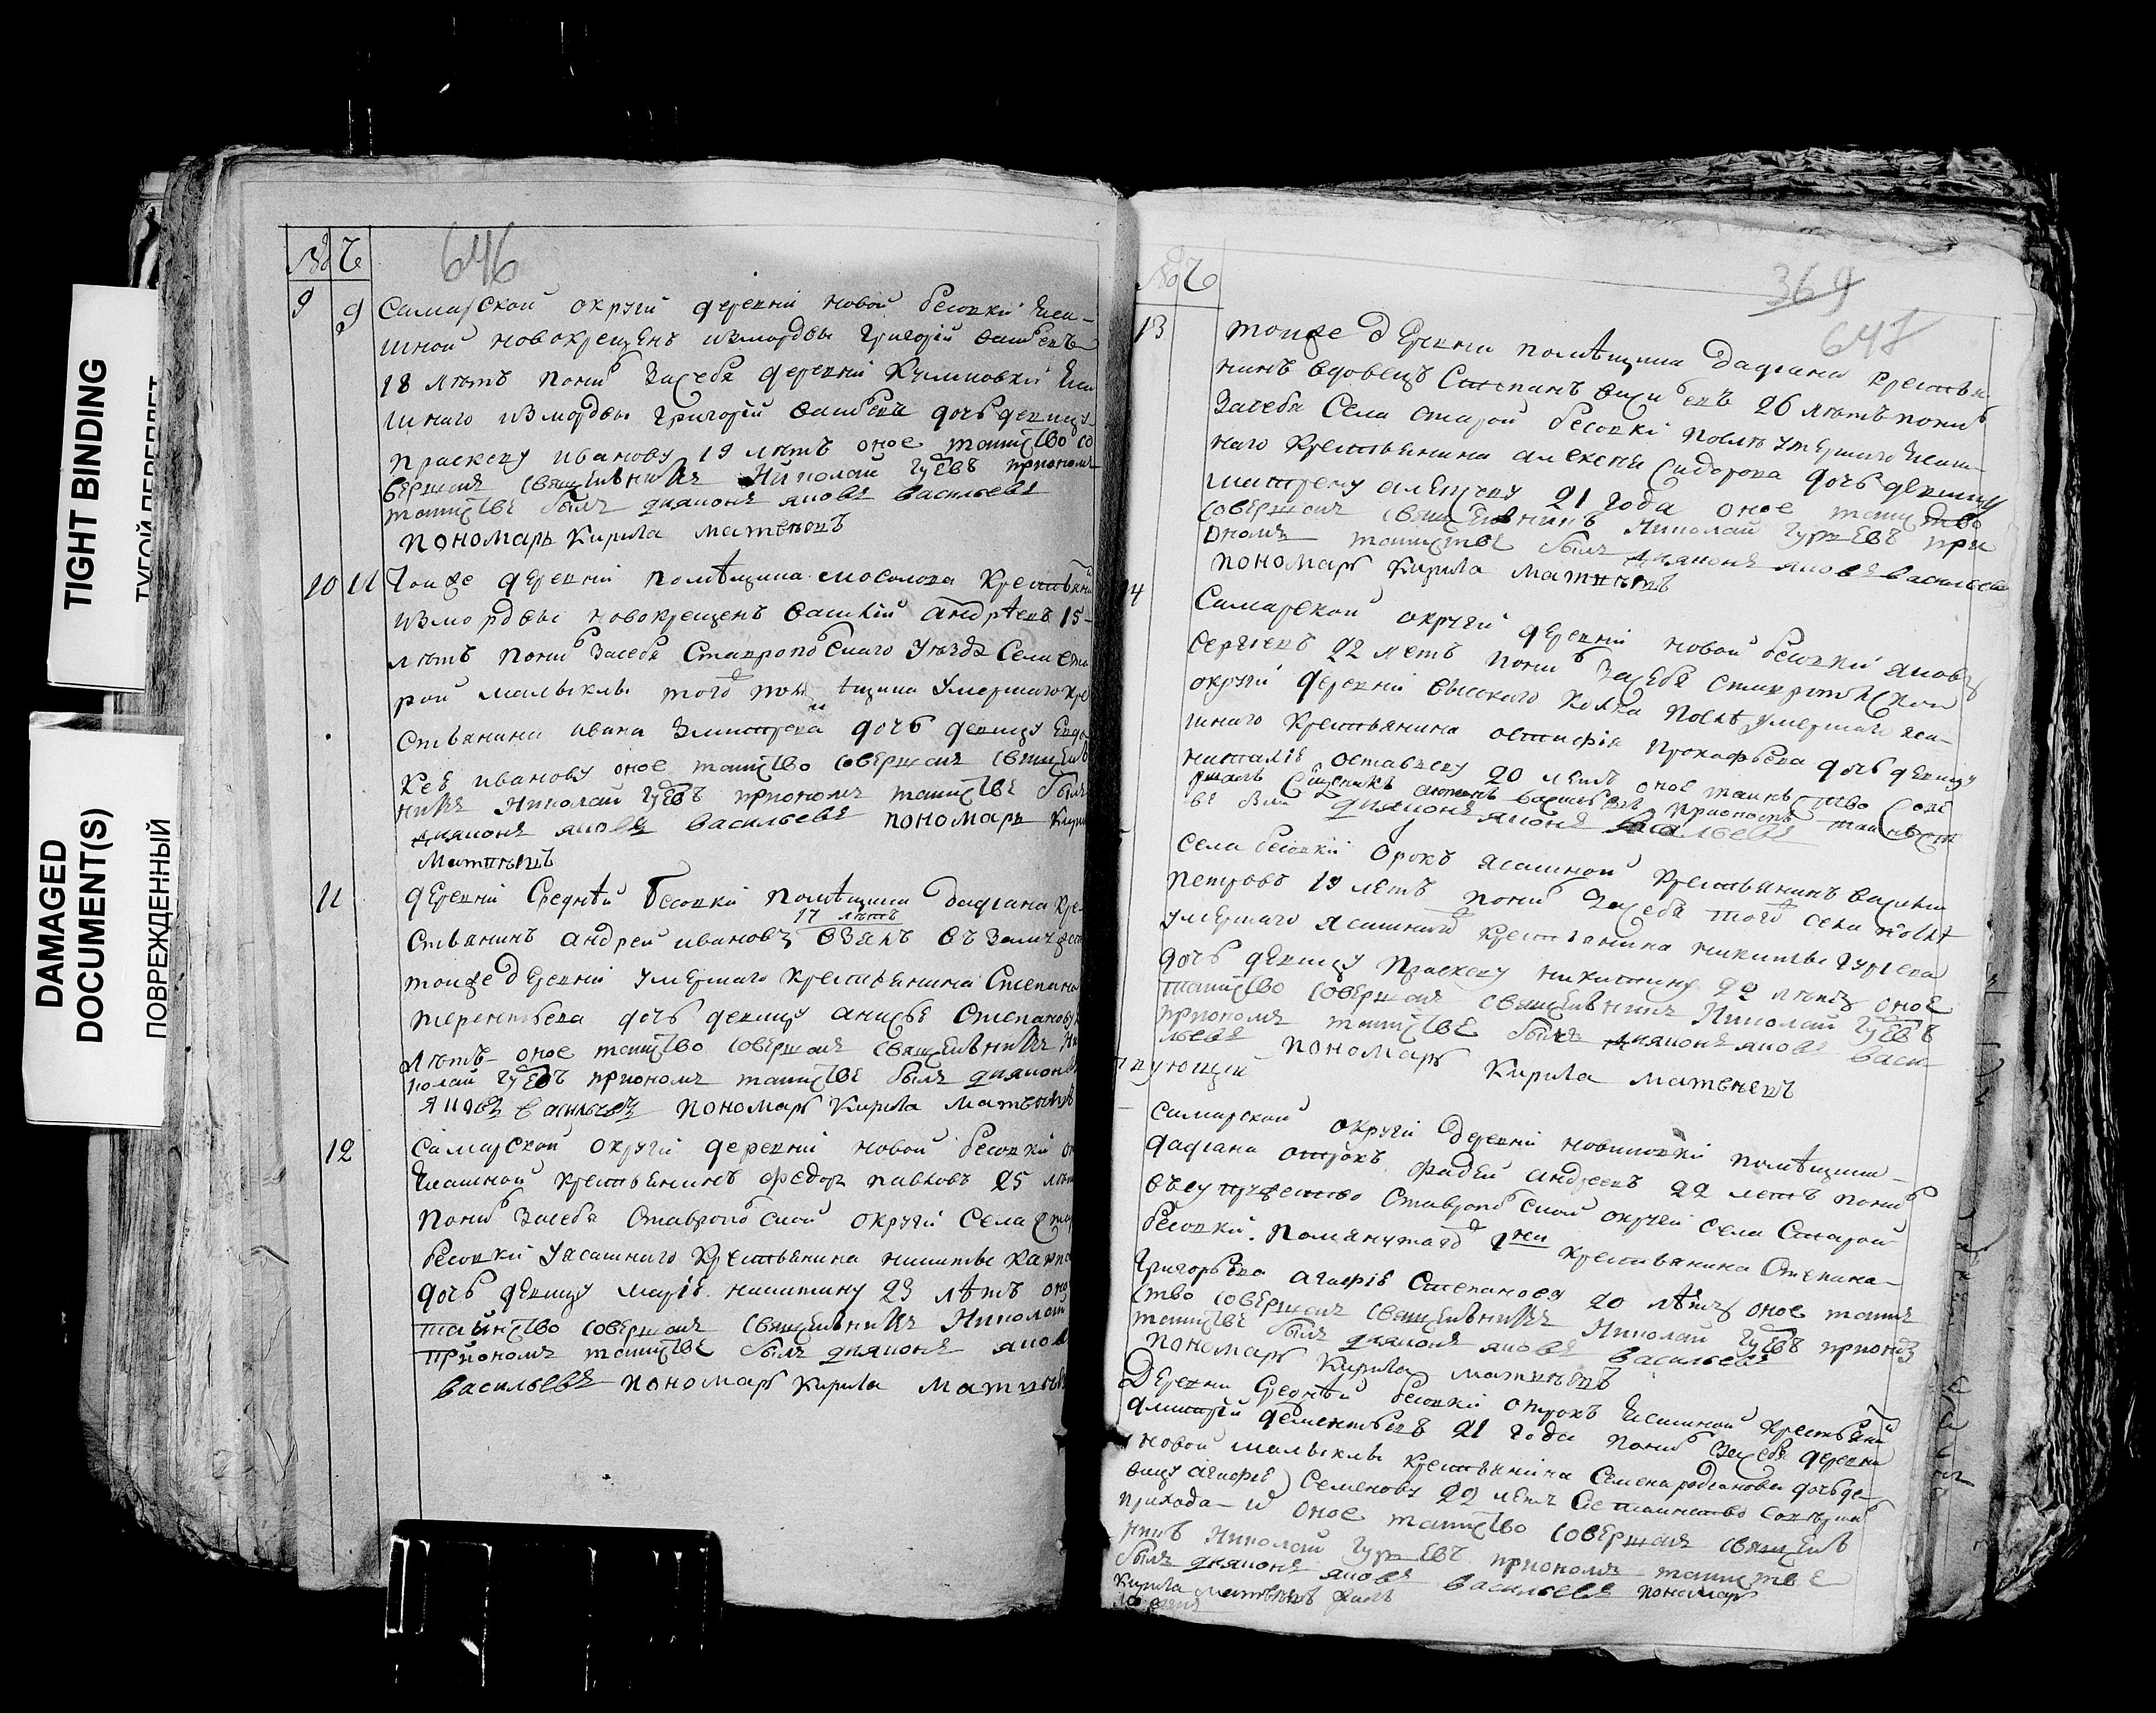 TIGHT BINDING
ТУГОЙ ПЕРЕПЛЕТ
DAMAGED
DOCUMENT(S)
ПОВРЕЖДЕННЫЙ
№ Ч
646
9 9 Самарской округи деревни новой бесовки Яса-
шной новокрещенъ измордвы григорей
18 летъ понял засебя деревни Яса
шнаго измордвы григорей дочь девицу
праскеву иванову 19 летъ оное таинство со
вершал священникъ Николай гурьевъприономъ
таинстве былъ диаконъ яковъ васильевъ
пономарь кирила матвеевъ
10 11 тоиже деревни помѣщика мосолова крестьяни
измордвы новокрещенъ андрѣевъ 15
летъ понял засебя Ставропольского уѣзда села ста
рой малыклы того помѣщика умершаго кре
стьянина ивана дочь девицу Евдо
кею иванову оное таинство совершал священ
никъ Николай гурьевъ приономъ таинстве былъ
диаконъ яковъ васильевъ пономарь кири
матвеевъ
11 деревни Средней бесовки помѣщика дадиана кре
17 летъ
стьянинъ андрей ивановъ взялъ въ замужест
тоиже деревни умершаго крестьянина Степана
терентьева дочь девицу анисью Степанову
летъ оное таинство совершал священникъ Ни
колай гурьевъ приономъ таинстве былъ диаконъ
яковъ васильевъ пономарь кирила матвеевъ
12 самарской округи деревни новой бесовки
Ясашной крестьянинъ федор павловъ 25 лет
понял засебя Ставропольской округи села стар
бесовки Уясашнаго крестьянина никиты
дочь девицу марью никитину 23 летъ оно
таинство совершал священникъ Николай
приономъ таинстве былъ диаконъ яков
васильевъ пономарь кирила матвеев
№ Ч
369
647
13 тоиже деревни помѣщика дадиана крестья
нинъ вдовецъ Степанъ 26 летъ понял
засебя Села старой бесовки после умершаго Ясаш
наго крестьянина алексея Сидорова дочь девицу
матрену алексееву 21 года оное таинство
совершал священникъ Николай гурьевъ при
ономъ таинстве былъ диаконъ яковъ васильевъ
пономарь кирила матвеевъ
14 Самарской округи деревни новой бесовки яковъ
сергеевъ 22 летъ понял засебя ставропольской
округи деревни высокого колка после умершаго яса-
шнаго крестьянина остафия прокофьева дочь девицу
наталью остафеву 20 летъ оное таинство сове
ршалъ Сщенникъ васильевъ приономъ таинст
ве был диаконъ яковъ васильевъ
села бесовки отрокъ ясашной крестьянинъ
петровъ 19 летъ понял засебя того села после
умершаго ясашнаго крестьянина никиты гурьева
дочь девицу праскеву никитину 22 летъ оное
таинство совершал священникъ Николай гурьевъ
приономъ таинстве былъ диаконъ яковъ васи
льевъ пономарь кирила матвеевъ
самарской округи деревни новиковки помѣщика
дадиана отрокъ фадей андреевъ 22 летъ понял
въсупружество Ставропольской округи села Старой
бесовки помянутаго крестьянина Степана
григорьева агафью Степанову 20 летъ оное таин
ство совершал священникъ Николай гурьевъ приономъ
таинстве былъ диаконъ яковъ васильевъ
пономарь кирила матвеевъ
Деревни Средней бесовки отрокъ Ясашной крестьянин
дмитрей дементьевъ 21 года понял засебя деревни
новой малыклы крестьянина Семена родионова дочь де-
вицу агафью Семенову 22 летъ
прихода оное таинство совершал священ
никъ Николай гурьевъ приономъ таинстве
былъ диаконъ яковъ васильевъ пономарь
кирила матвеевъ